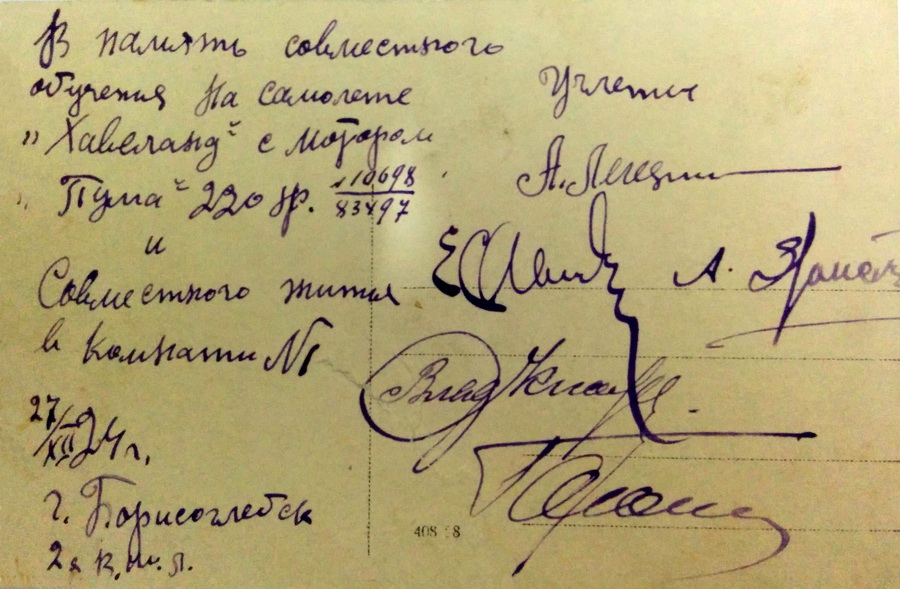 В память совместного
обучения на самолете
„Хавеланд" с мотором
„Пума" 220 гр. 110698
83497
и
Совместного жития
в комнати №1
27/XII 24 г.
г. Борисоглебск
2я в. ш. л.
Учлети
А.
А.
Влад
408 8